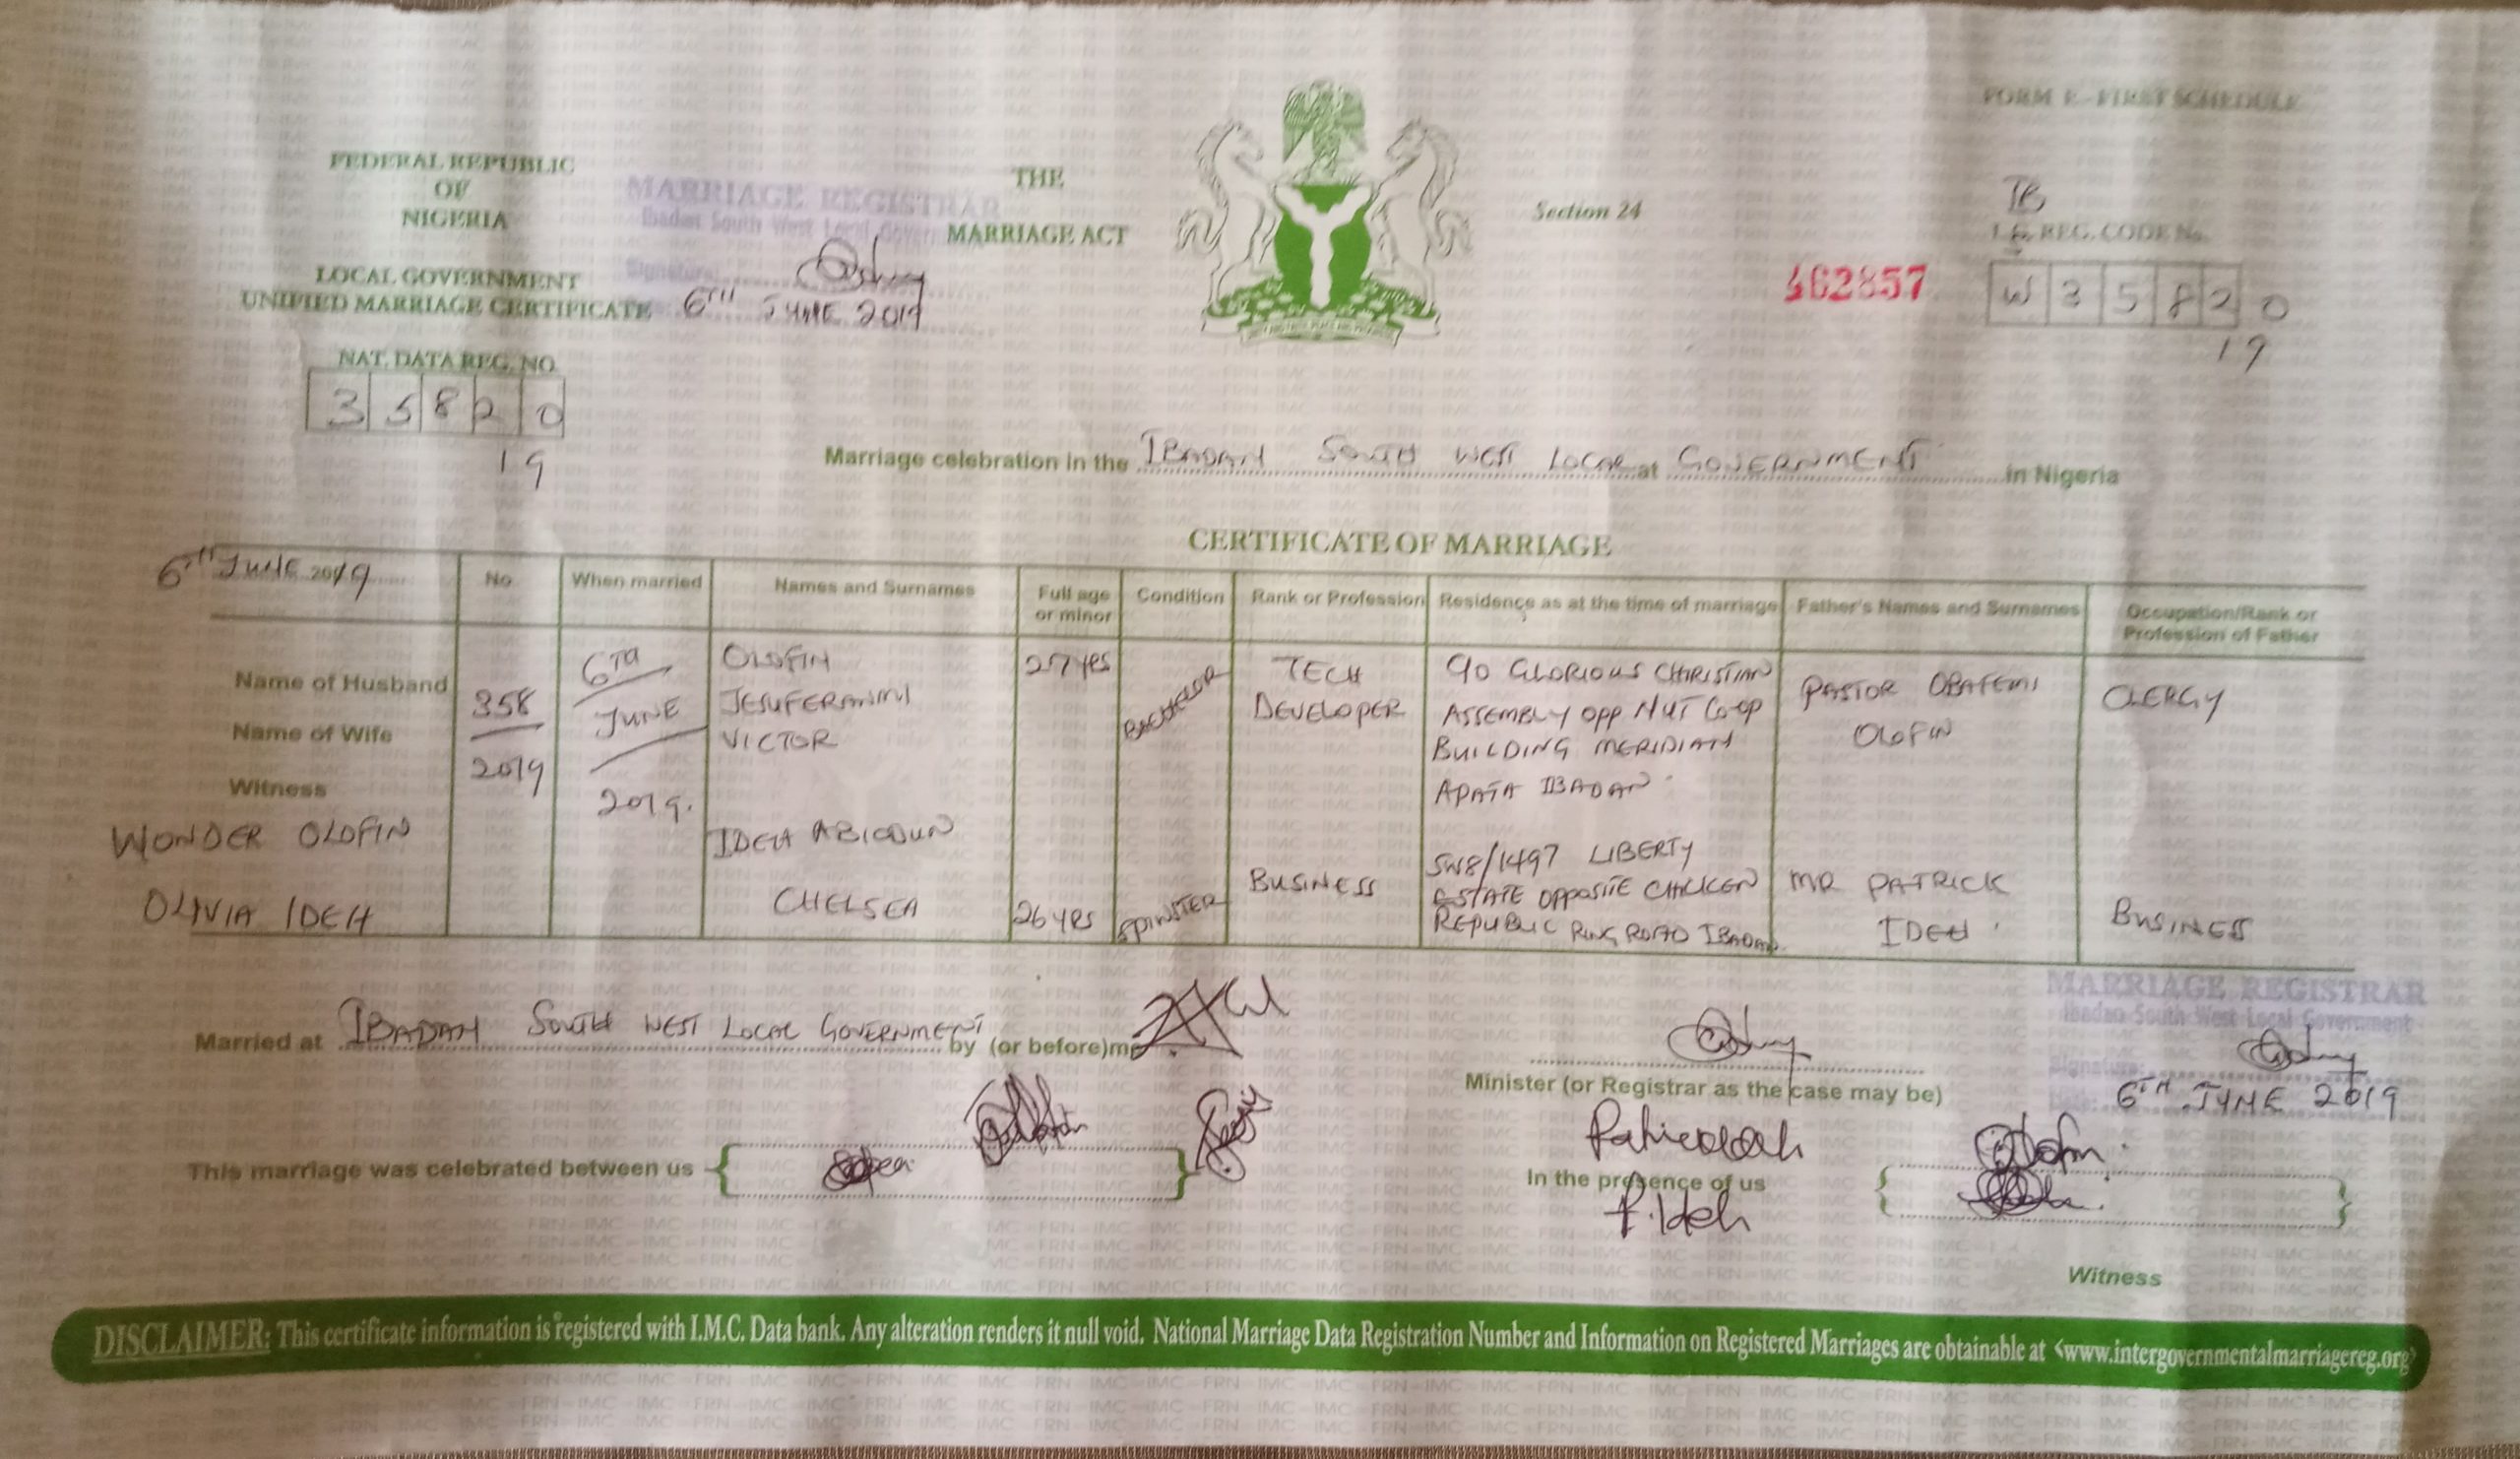 FORM E - FIRST SCHEDULE
FEDERAL REPUBLIC
OF
NIGERIA
LOCAL GOVERNMENT
UNIFIED MARRIAGE CERTIFICATE
MARRIAGE REGISTRAR
Ibadan South West Local Govern
Signature
6TH JUNE 2019
THE
MARRIAGE ACT
Section 24
462857
IB
L.G. REG. CODE No.
W35820
19
NAT. DATA REG. NO.
35820
19
Marriage celebration in the IBADAN SOUTH WEST LOCAL at GOVERNMENT in Nigeria
CERTIFICATE OF MARRIAGE
6TH JUNE 2019
No
When married
Names and Surnames
Full age or minor
Condition
Rank or Profession
Residence as at the time of marriage
Father's Names and Surnames
Occupation/Rank or Profession of Father
Name of Husband
Name of Wife
Witness
WONDER OLOFIN
OLIVIA IDEH
358
2019
6TH
JUNE
2019.
OLOFIN
JESUFERANMI
VICTOR
27yrs
BACHELOR
TECH
DEVELOPER
C/O GLORIOUS CHRISTIAN
ASSEMBLY OPP NUT CO-OP
BUILDING MERIDIAN
APATA IBADAN
PASTOR OBAFEMI
OLOFIN
CLERGY
IDEH ABIODUN
CHELSEA
26yrs
SPINSTER
BUSINESS
SW8/1497 LIBERTY
ESTATE OPPOSITE CHICKEN
REPUBLIC RING ROAD IBADAN.
MR PATRICK
IDEH
BUSINESS
Married at IBADAN SOUTH WEST LOCAL GOVERNMENT by (or before) me
Minister (or Registrar as the case may be)
MARRIAGE REGISTRAR
Ibadan South West Local Government
Signature
6TH JUNE 2019
This marriage was celebrated between us
In the presence of us
P. Ideh
Witness
DISCLAIMER: This certificate information is registered with I.M.C. Data bank. Any alteration renders it null void. National Marriage Data Registration Number and Information on Registered Marriages are obtainable at <www.intergovernmentalmarriagereg.org>